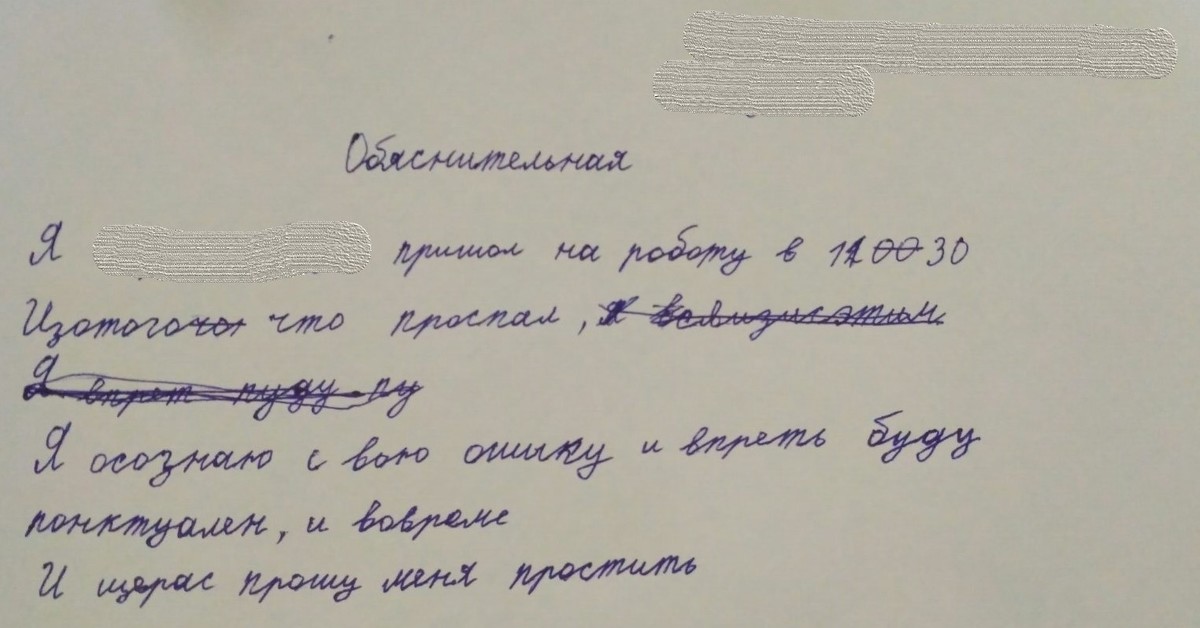 Обяснительная
Я пришол на роботу в 11 00 30
Изотогочо что проспал,
Я впрет пуду пу
Я осознаю с вою ошику и впреть буду
понктуален, и вовреме
И щерас прошу меня простить